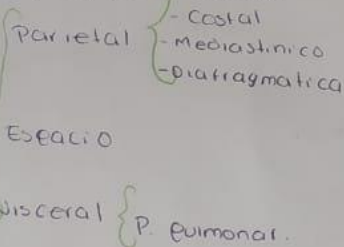 Parietal
- Costal
- Mediastinico
- Diafragmatica
Espacio
visceral
P. Pulmonar.